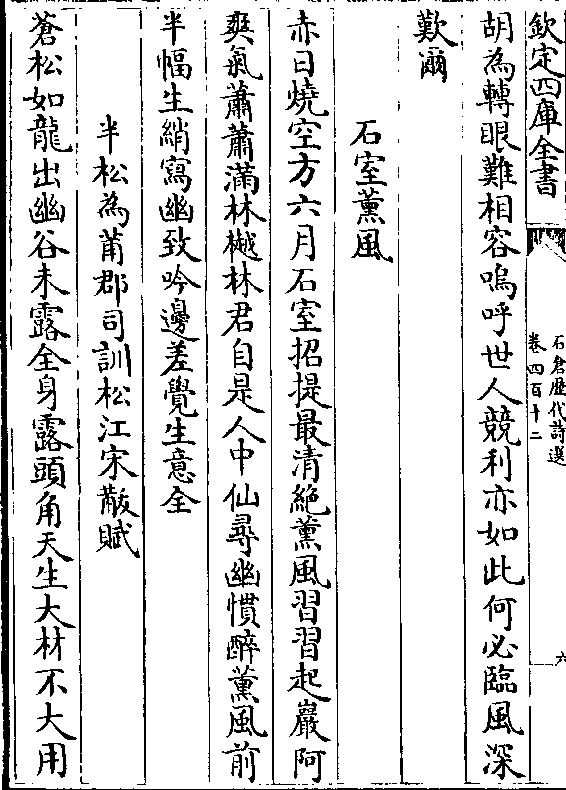 欽定四庫全書
石倉歷代詩選
卷四百十二
六
胡為轉眼難相容嗚呼世人競利亦如此何必臨風深
歎爾
石室薰風
赤日燒空方六月石室招提最清絶薰風習習起巖阿
爽氣蕭蕭滿林樾林君自是人中仙尋幽慣醉薰風前
半幅生綃寫幽致吟邊差覺生意全
半松為莆郡司訓松江宋黻賦
蒼松如龍出幽谷未露全身露頭角天生大材不大用